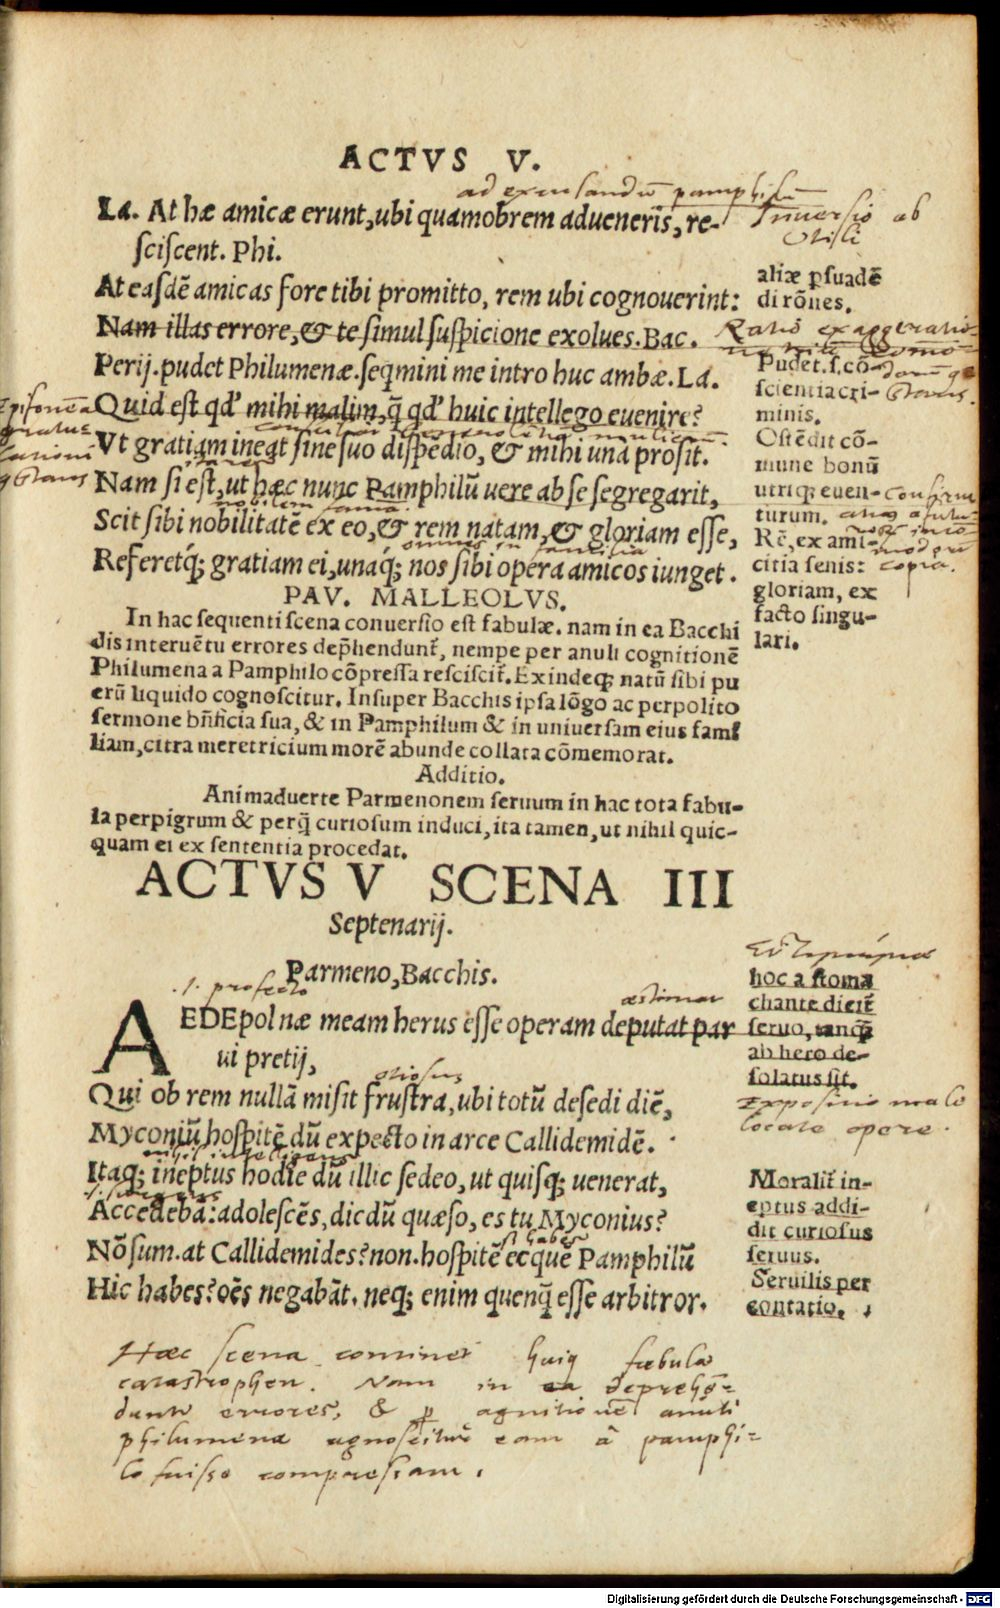 ACTVS V.
ad excusandū pamphilū
La. At hæ amicæ erunt, ubi quamobrem adueneris, re-
sciscent. Phi.
Inuersio ab
Vtili
At easdē amicas fore tibi promitto, rem ubi cognouerint:
aliæ psuadē
di rōnes.
Nam illas errore, & te simul suspicione exolues. Bac.
Ratio exaggeratio-
Perij. pudet Philumenæ. seqmini me intro huc ambæ. La.
Pudet. s. cō-
scientia cri-
minis.
Quid est qd' mihi malim, q̄ qd' huic intellego euenire?
Vt gratiam ineat sine suo dispēdio, & mihi una prosit.
Ostēdit cō-
mune bonū
utriq; euen-
turum.
Nam si est, ut hæc nunc Pamphilū uere ab se segregarit,
nobilem fama.
Scit sibi nobilitatē ex eo, & rem natam, & gloriam esse,
omnes in familia
Referetq́; gratiam ei, unaq́; nos sibi opera amicos iunget.
Rē, ex ami-
citia senis:
gloriam, ex
facto singu-
lari.
copia.
PAV. MALLEOLVS.
In hac sequenti scena conuersio est fabulæ. nam in ea Bacchi
dis interuētu errores dep̄hendunt᷑, nempe per anuli cognitionē
Philumena a Pamphilo cōpressa resciscit᷑. Exindeq; natū sibi pu
erū liquido cognoscitur. Insuper Bacchis ipsa lōgo ac perpolito
sermone bn̄ficia sua, & in Pamphilum & in uniuersam eius fami
liam, citra meretricium morē abunde collata cōmemorat.
Additio.
Animaduerte Parmenonem seruum in hac tota fabu-
la perpigrum & perq̄ curiosum induci, ita tamen, ut nihil quic-
quam ei ex sententia procedat.
ACTVS V SCENA III
Septenarij.
Parmeno, Bacchis.
.i. profecto
æstimat
AEDEpol næ meam herus esse operam deputat par
ui pretij,
hoc a stoma
chante dicit᷑
seruo, tanq̄
ab hero de-
solatus sit.
otiosus
Qui ob rem nullā misit frustra, ubi totū desedi diē,
Expositio male
locate opere.
Myconiū hospitē dū expecto in arce Callidemidē.
nihil intelligens
Itaq; ineptus hodie dū illic sedeo, ut quisq; uenerat,
Accedebā: adolescēs, dicdū quæso, es tu Myconius?
Moralit᷑ in-
eptus addi-
dit curiosus
seruus.
si habes
Nō sum. at Callidemides? non. hospitē ecquē Pamphilū
Hic habes? oēs negabāt. neq; enim quenq̄ esse arbitror.
Seruilis per
contatio.
Hæc scena continet huiq fabulæ
catastrophen. Nam in ea deprehē-
dunt errores, & p agnitionē anuli
philumena agnoscitur eam ā pamphi-
lo fuisse compressam.
Digitalisierung gefördert durch die Deutsche Forschungsgemeinschaft - DFG